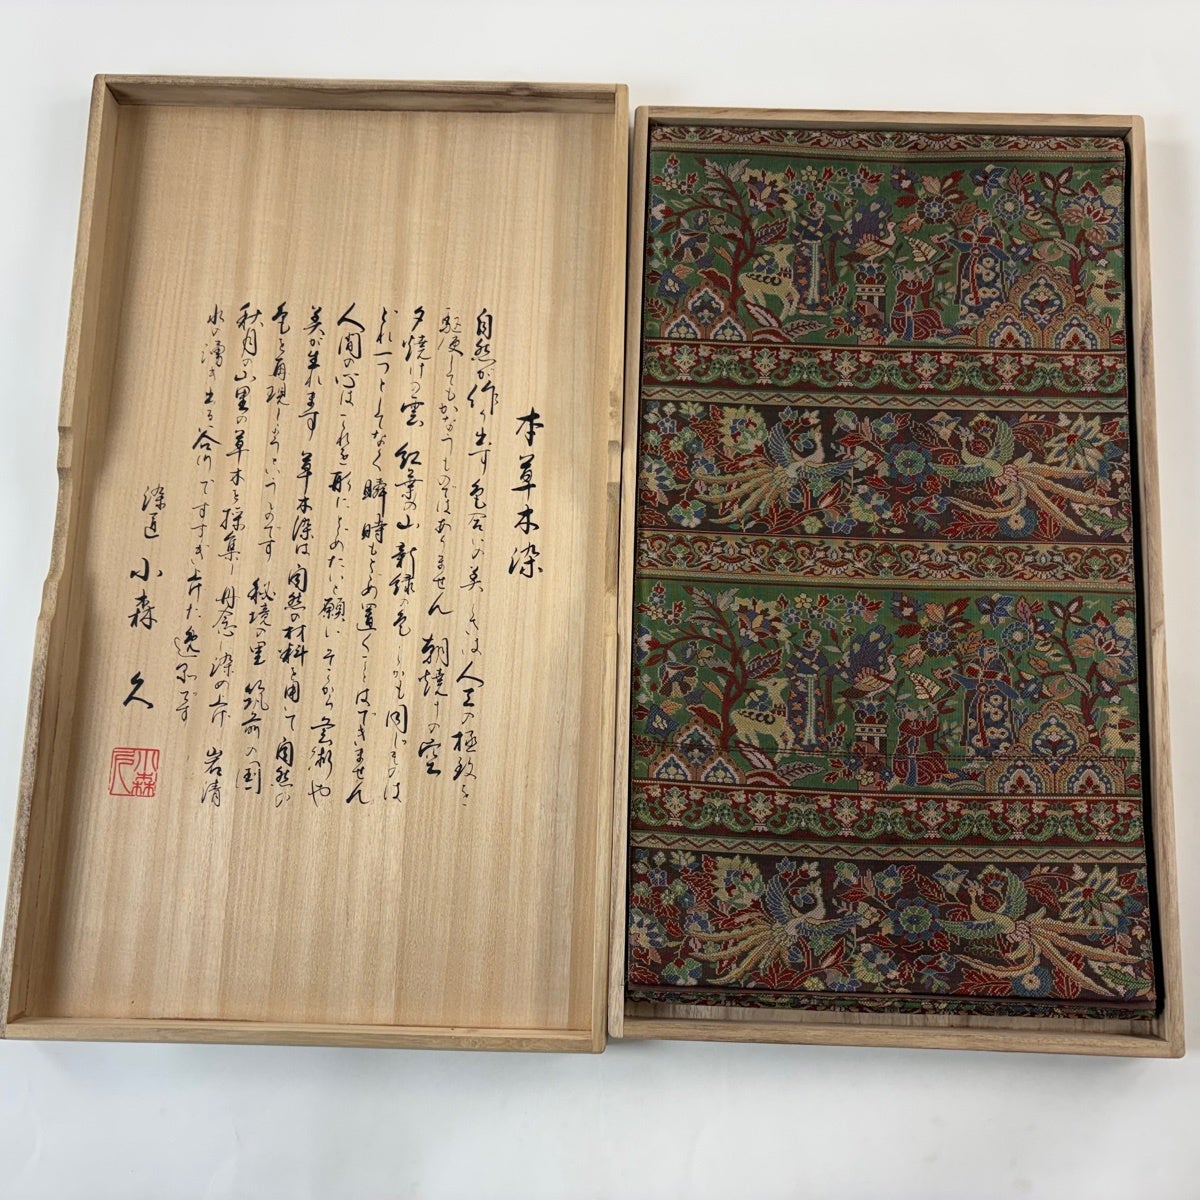 本草木染
自然が作り出す色合いの美しさは人工の極致を
駆使してもかなうものではありません 朝焼けの空
夕焼けの雲 紅葉の山 新緑の色しかも同じものは
どれ一つとしてなく瞬時もとめ置くことはできません
人間の心はこれを形にとめたいと願いそこから芸術や
美が生れます 草木染は自然の材料を用いて自然の
色を再現しようというものです 秘境の里 筑前の国
秋月の山里の草木を採集し丹念に染め上げ 岩清
水の湧き出る谷川ですすぎ上げた逸品です
染匠 小森 久
小森久